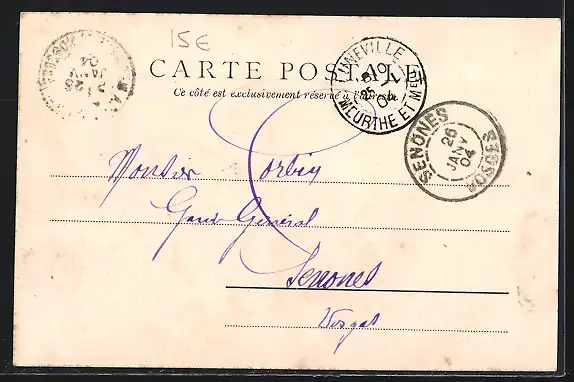 15E
CARTE POSTALE
Ce côté est exclusivement réservé à l'adresse
LUNEVILLE
25
04
MEURTHE ET M
SENONES
26
JANV
04
VOSGES
JANV
04
Monsieur Corbin
Garde Général
Senones
Vosges